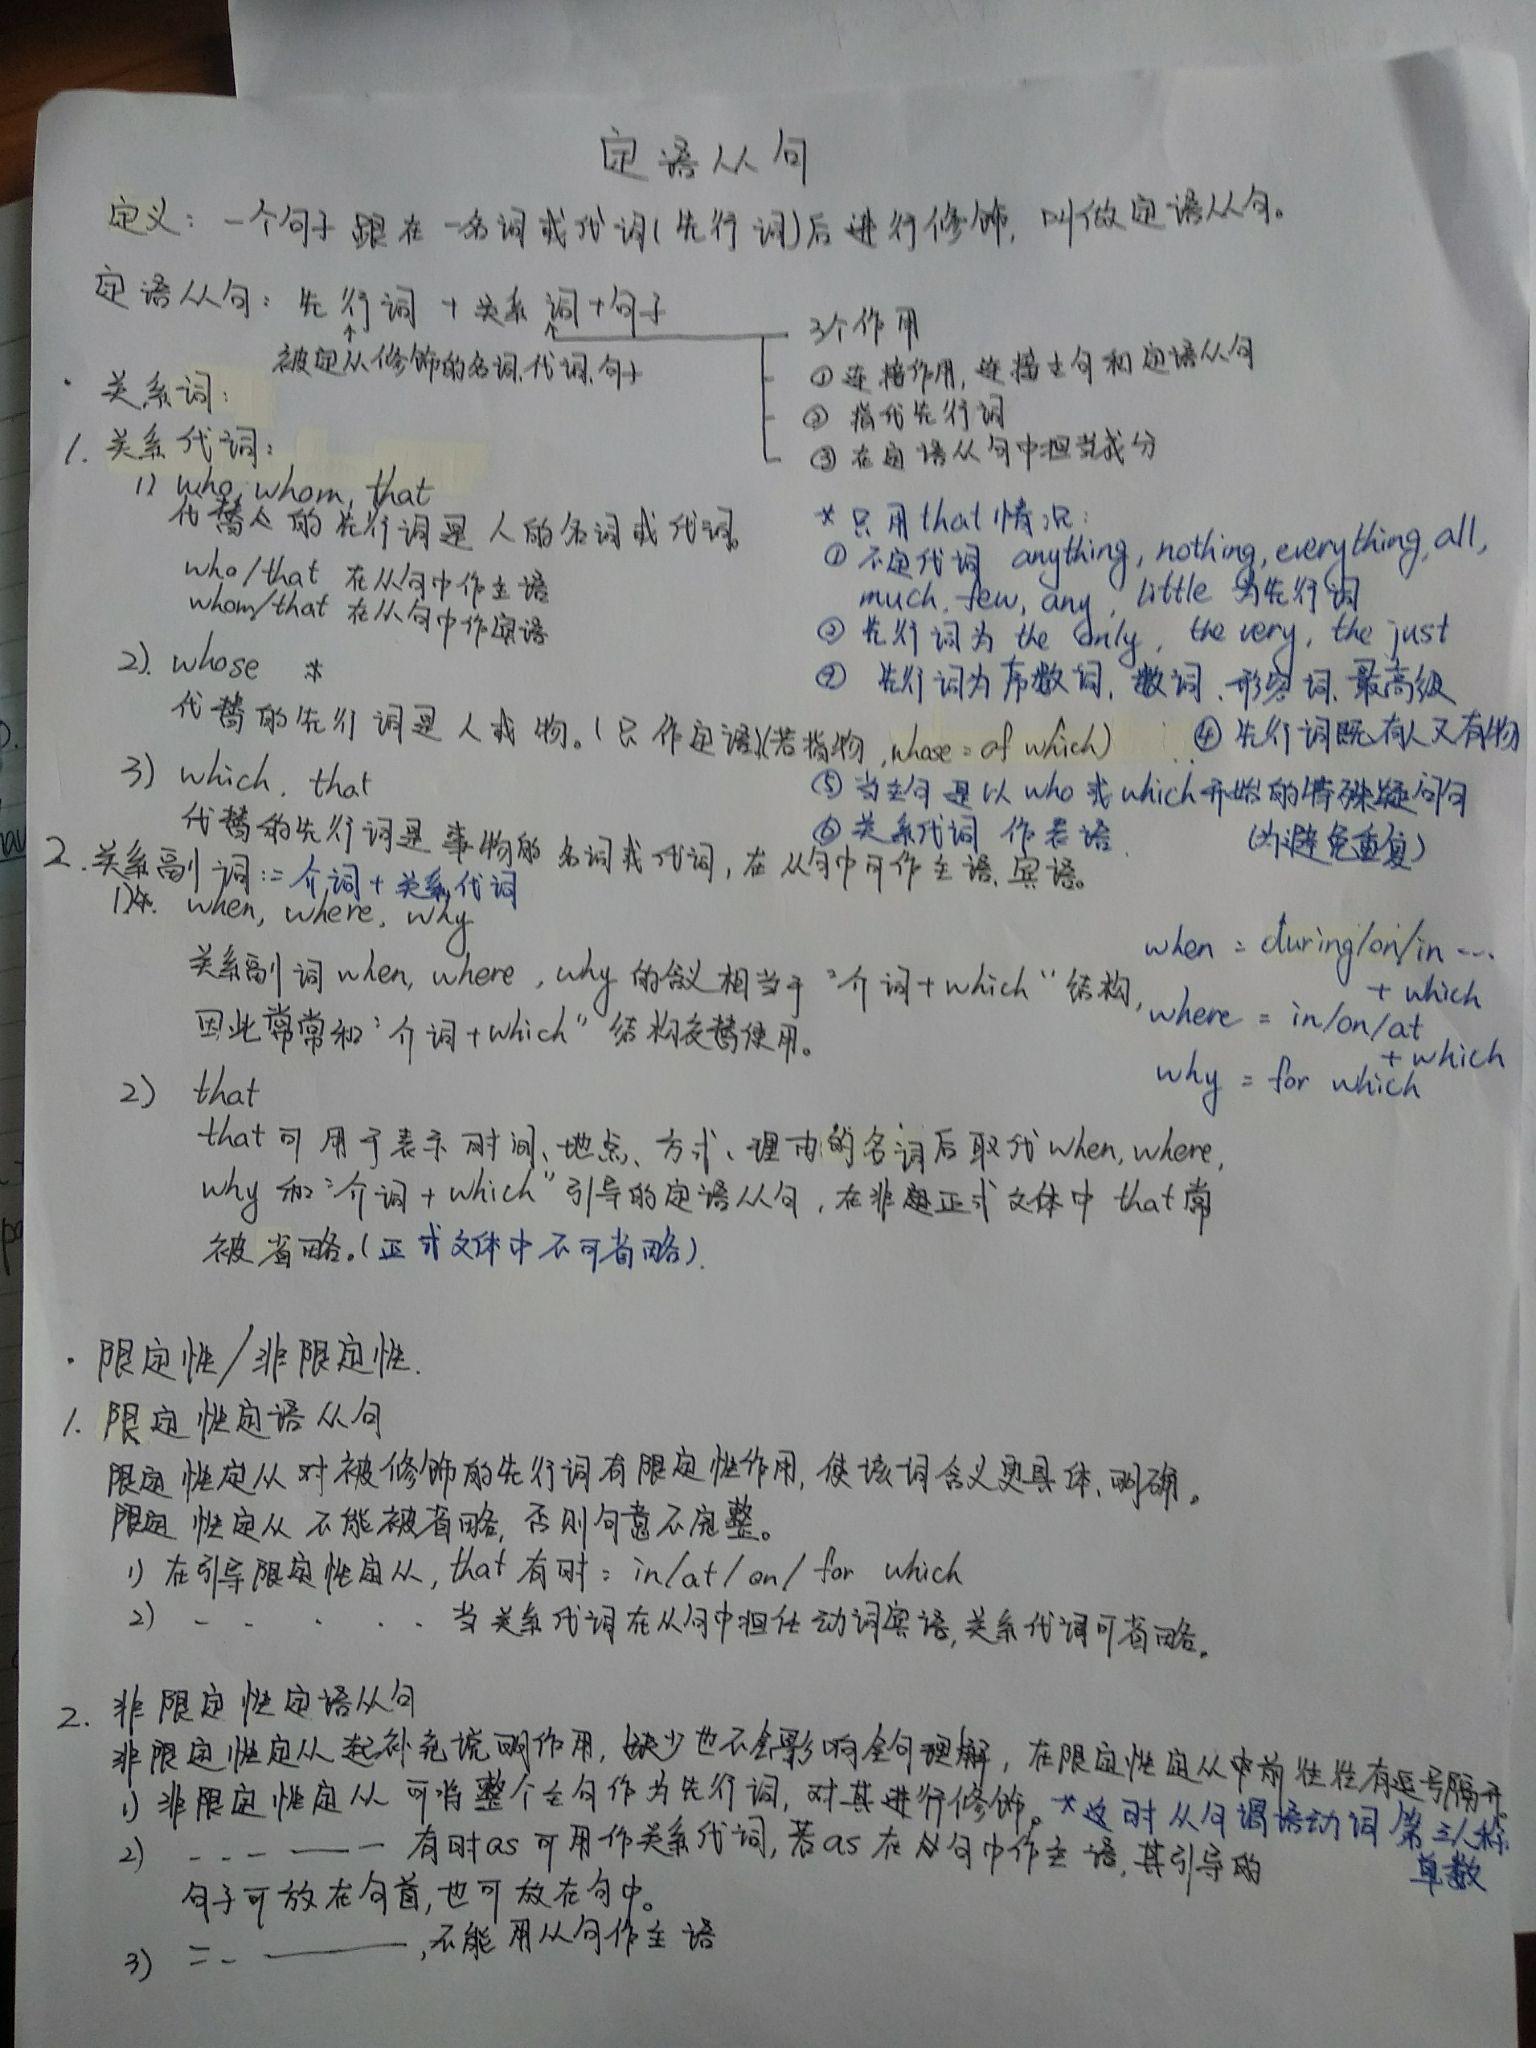 定语从句
定义：一个句子跟在一名词或代词(先行词)后进行修饰，叫做定语从句。
定语从句：先行词 + 关系词+句子
被定从修饰的名词、代词、句子
3个作用
①连接作用，连接主句和定语从句
② 指代先行词
③在定语从句中担当成分
· 关系词：
1. 关系代词：
1) who, whom, that
代替人的先行词是人的名词或代词。
who/that 在从句中作主语
whom/that 在从句中作宾语
2). whose *
代替的先行词是人或物。(只作定语)(若指物, whose = of which)
3) which, that
代替的先行词是事物的名词或代词，在从句中可作主语、宾语。
* 只用that情况：
① 不定代词 anything, nothing, everything, all,
much, few, any, little 为先行词
② 先行词为 the only, the very, the just
③ 先行词为序数词、数词、形容词、最高级
④ 先行词既有人又有物
⑤ 当主句是以 who 或 which 开始的特殊疑问句
(为避免重复)
⑥ 关系代词 作表语.
2. 关系副词：= 介词 + 关系代词
1) when, where, why
关系副词 when, where, why 的含义相当于“介词+which”结构，
因此常常和“介词+which”结构交替使用。
when = during/on/in ...
+ which
where = in/on/at
+ which
why = for which
2) that
that可用于表示时间、地点、方式、理由的名词后取代when, where,
why 和“介词+which”引导的定语从句，在非正式文体中 that常
被省略。(正式文体中不可省略).
· 限定性/非限定性.
1. 限定性定语从句
限定性定从对被修饰的先行词有限定性作用，使该词含义更具体、明确。
限定性定从不能被省略，否则句意不完整。
1) 在引导限定性定从，that有时 = in/at/on/for which
2) - - · · · 当关系代词在从句中担任动词宾语，关系代词可省略。
2. 非限定性定语从句
非限定性定从起补充说明作用，缺少也不会影响全句理解，在限定性定从中前往往有逗号隔开。
1) 非限定性定从可将整个主句作为先行词，对其进行修饰。*这时从句谓语动词第三人称
单数
2) - - - —— 有时as可用作关系代词，若as在从句中作主语，其引导的
句子可放在句首，也可放在句中。
3) = - ——，不能用从句作主语